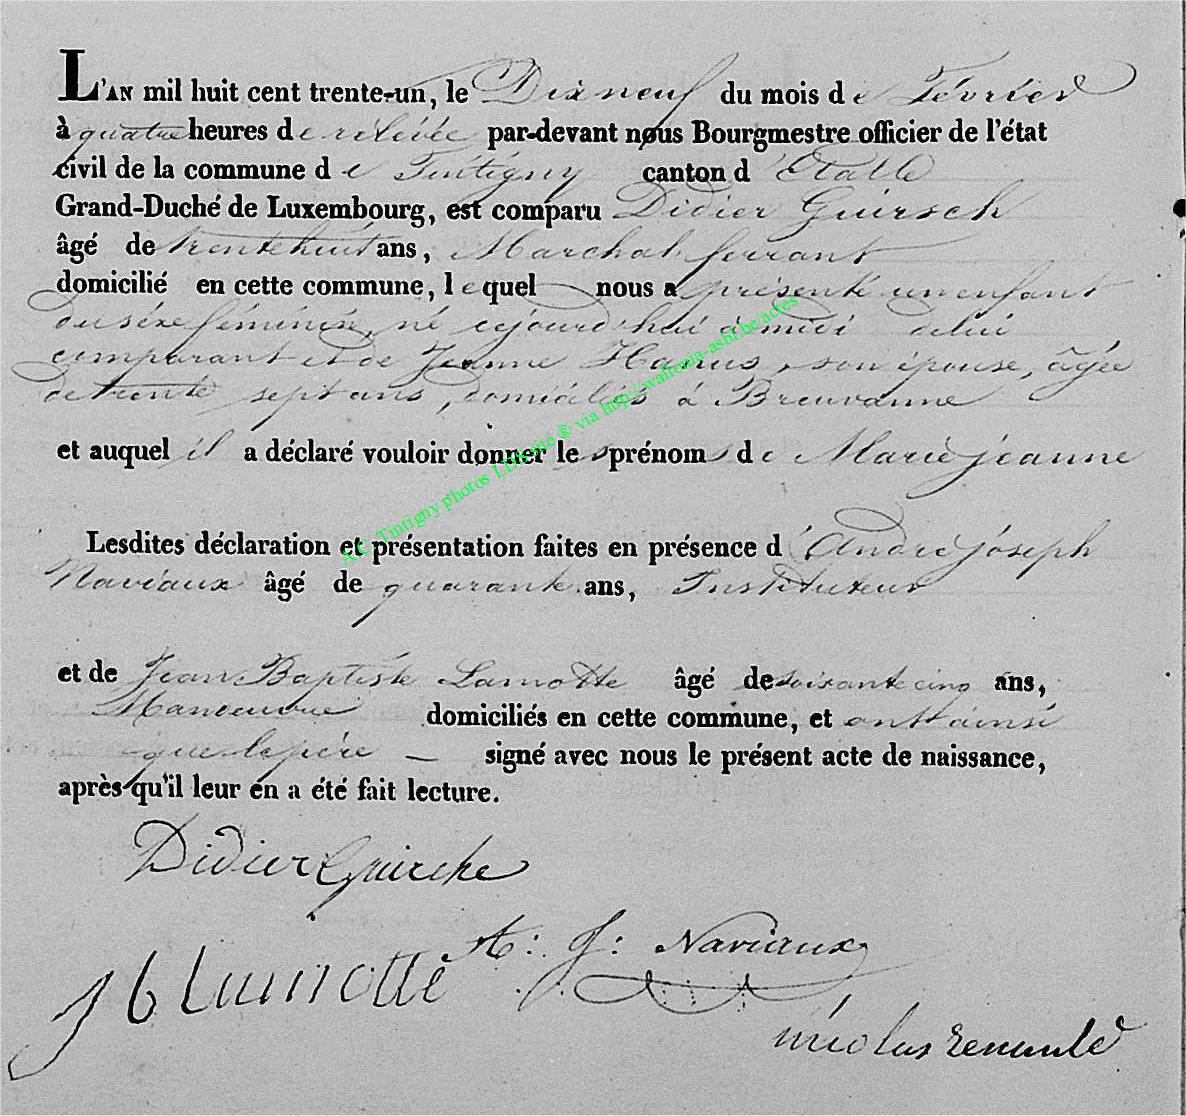 L'AN mil huit cent trente-un, le Dix neuf du mois de Février
à quatre heures de relevée par-devant nous Bourgmestre officier de l'état
civil de la commune de Tintigny canton d'Etalle
Grand-Duché de Luxembourg, est comparu Didier Guirsch
âgé de trente huit ans, Marchal ferrant
domicilié en cette commune, lequel nous a présenté un enfant
du séxe féminin, né cejourd'hui à midi delui
comparant et de Jeanne Hanus, son épouse, âgée
de trente sept ans, domiciliés à Breuvanne
et auquel il a déclaré vouloir donner les prénoms de Marie jeanne
Lesdites déclaration et présentation faites en présence d'André jóseph
Naviaux âgé de quarante ans, Instituteur
et de Jean Baptiste Lamotte âgé de soixante cinq ans,
Manoeuvre domiciliés en cette commune, et ont ainsi
que le père — signé avec nous le présent acte de naissance,
après qu'il leur en a été fait lecture.
Didier Guirche
A: J: Naviaux
J b Lamotte
nicolas renauld
A.C. Tintigny photos LDS site ® via http://wallonia-asbl.be/actes